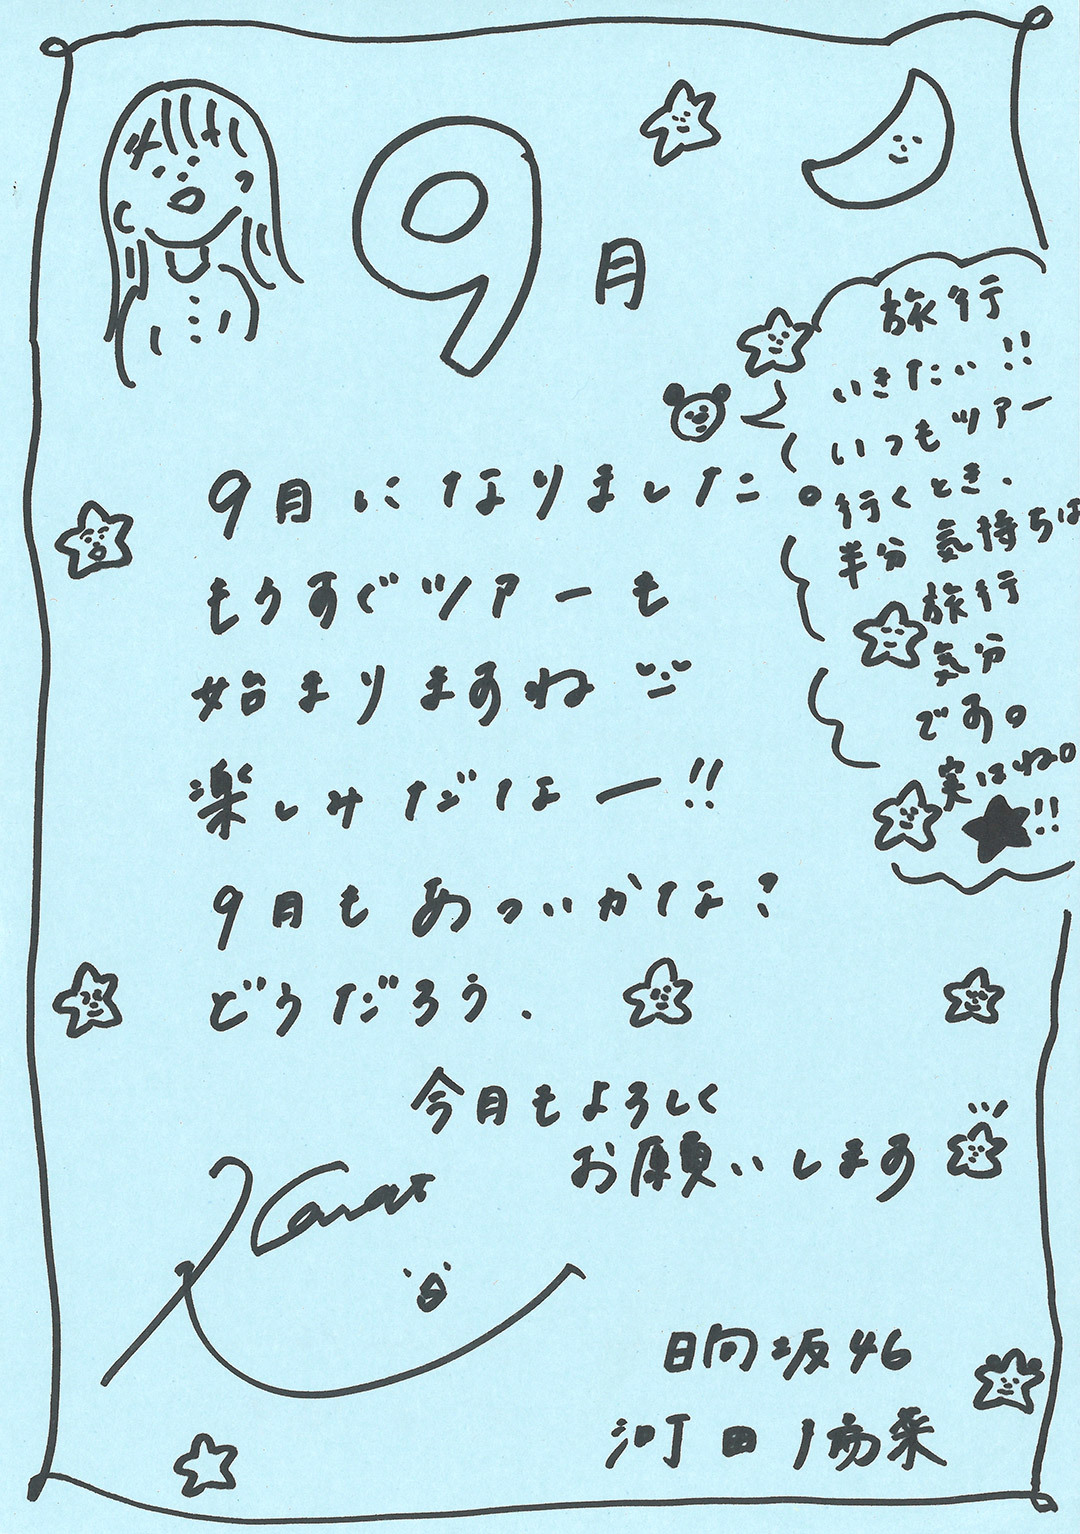 9月
旅行
いきたい!!
いつもツアー
行くとき、
半分気持ちは
旅行
気分
です。
実はね。
!!
9月になりました。
もうすぐツアーも
始まりますね
楽しみだなー!!
9月もあついかな?
どうだろう、
今月もよろしく
お願いします
Kanat
日向坂46
河田陽菜